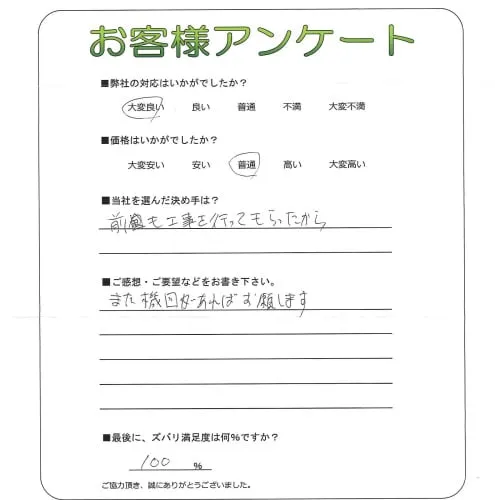 お客様アンケート
■弊社の対応はいかがでしたか?
大変良い 良い 普通 不満 大変不満
■価格はいかがでしたか?
大変安い 安い 普通 高い 大変高い
■当社を選んだ決め手は?
前回も工事を行ってもらったから
■ご感想・ご要望などをお書き下さい。
また機回があればお願します
■最後に、ズバリ満足度は何%ですか?
100 %
ご協力頂き、誠にありがとうございました。